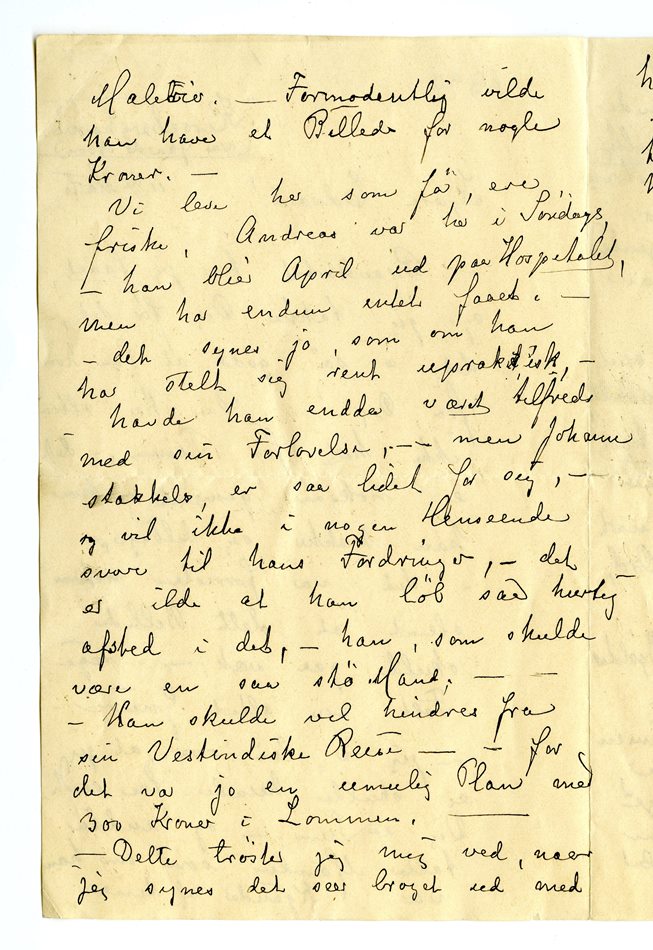 Maleri. — Formodentlig vilde
han have et Billede for nogle
Kroner. —
Vi leve her som få, ere
friske, Andreas var her i Søndags,
— han blier April ud paa Hospitalet,
men har endnu intet faaet. —
— det synes jo, som om han
har stelt sig rent upraktisk, —
havde han endda været tilfreds
med sin Forlovelse, — — men Johanne
stakkels, er saa lidet for sig, —
og vil ikke i nogen Henseende
svare til hans Fordringer, — det
er ilde at han løb saa hurtig
afsted i det, — han, som skulde
være en saa stø Mand. — —
— Han skulde vel hindres fra
sin Vestindiske Reise — — for
det var jo en umulig Plan med
300 Kroner i Lommen. —
— Dette trøster jeg mig ved, naar
jeg synes det seer broget ud med